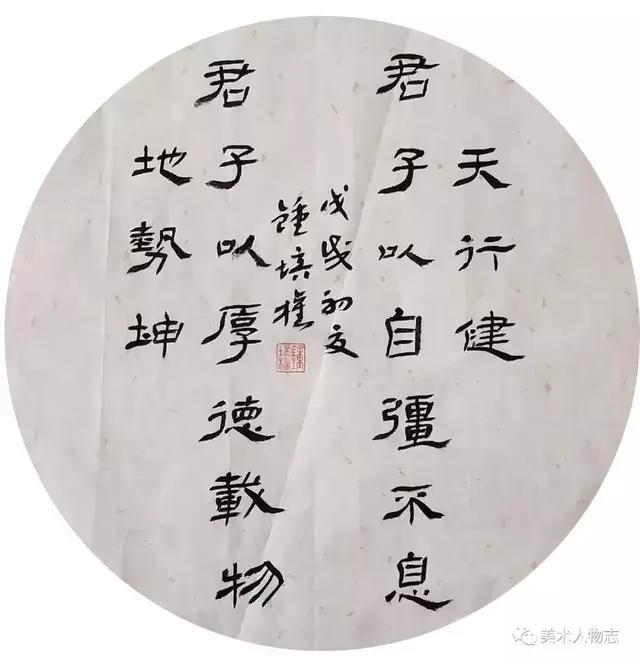 天行健
君子以自彊不息
地勢坤
君子以厚德載物
戊戌初夏
鍾培權
美术人物志